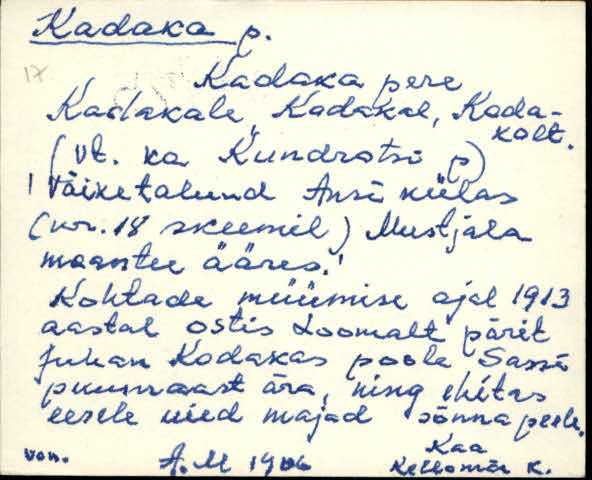 Kadaka p.
17
Kadaka pere
Kadakale, Kadakal, Kada-
kalt.
(vt. ka Kundrotsi p)
Väiketalund Ansi külas
(nr. 18 skeemil) Mustjala
maantee ääres.
Kohtade müümise ajal 1913
aastal ostis Loomalt pärit
Juhan Kadakas poole Sassi
puumaast ära, ning ehitas
eesele uued majad sönna peele.
von. A.M 1906
Kaa
K.